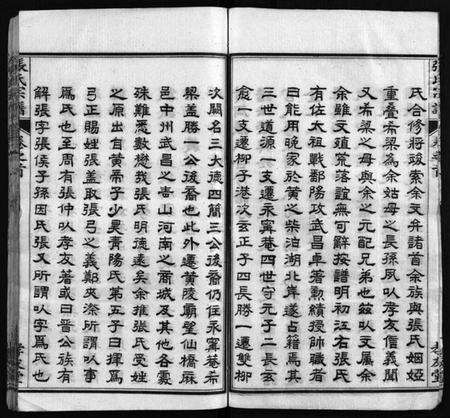 張氏宗譜
卷之首
氏合修將竣索余文弁諸首余族與張氏姻婭
重疊希梁為余姑母之長孫夙以孝友信義聞
又希梁之母與余之元配兄弟也茲以文屬余
余雖文殖荒落誼無可辭按譜明初江右張氏
有佐太祖戰鄱陽攻武昌卓著勳績授帥職者
曰能用晚家於黃之柴泊湖北岸遂占籍焉其
三世道源一支遷永甯菴四世守元子二長云
愈一支遷柳子港次云正子四長勝一遷雙柳
次闕名三大德四闕三公後裔仍住永甯菴希
梁蓋勝一公後裔也此外遷黃陵廟望仙橋麻
邑中州武昌之青山河南之商城及其他各處
殊難悉數懋哉張氏明德遠矣余推張氏受姓
之原出自黃帝子少昊青陽氏第五子曰揮為
弓正賜姓張蓋取張弓之義鄭夾漈所謂以事
為氏也至周有張仲以孝友著或曰晉公族有
解張字張侯子孫因氏張又所謂以字為氏也
張氏宗譜
卷之首
孝友堂